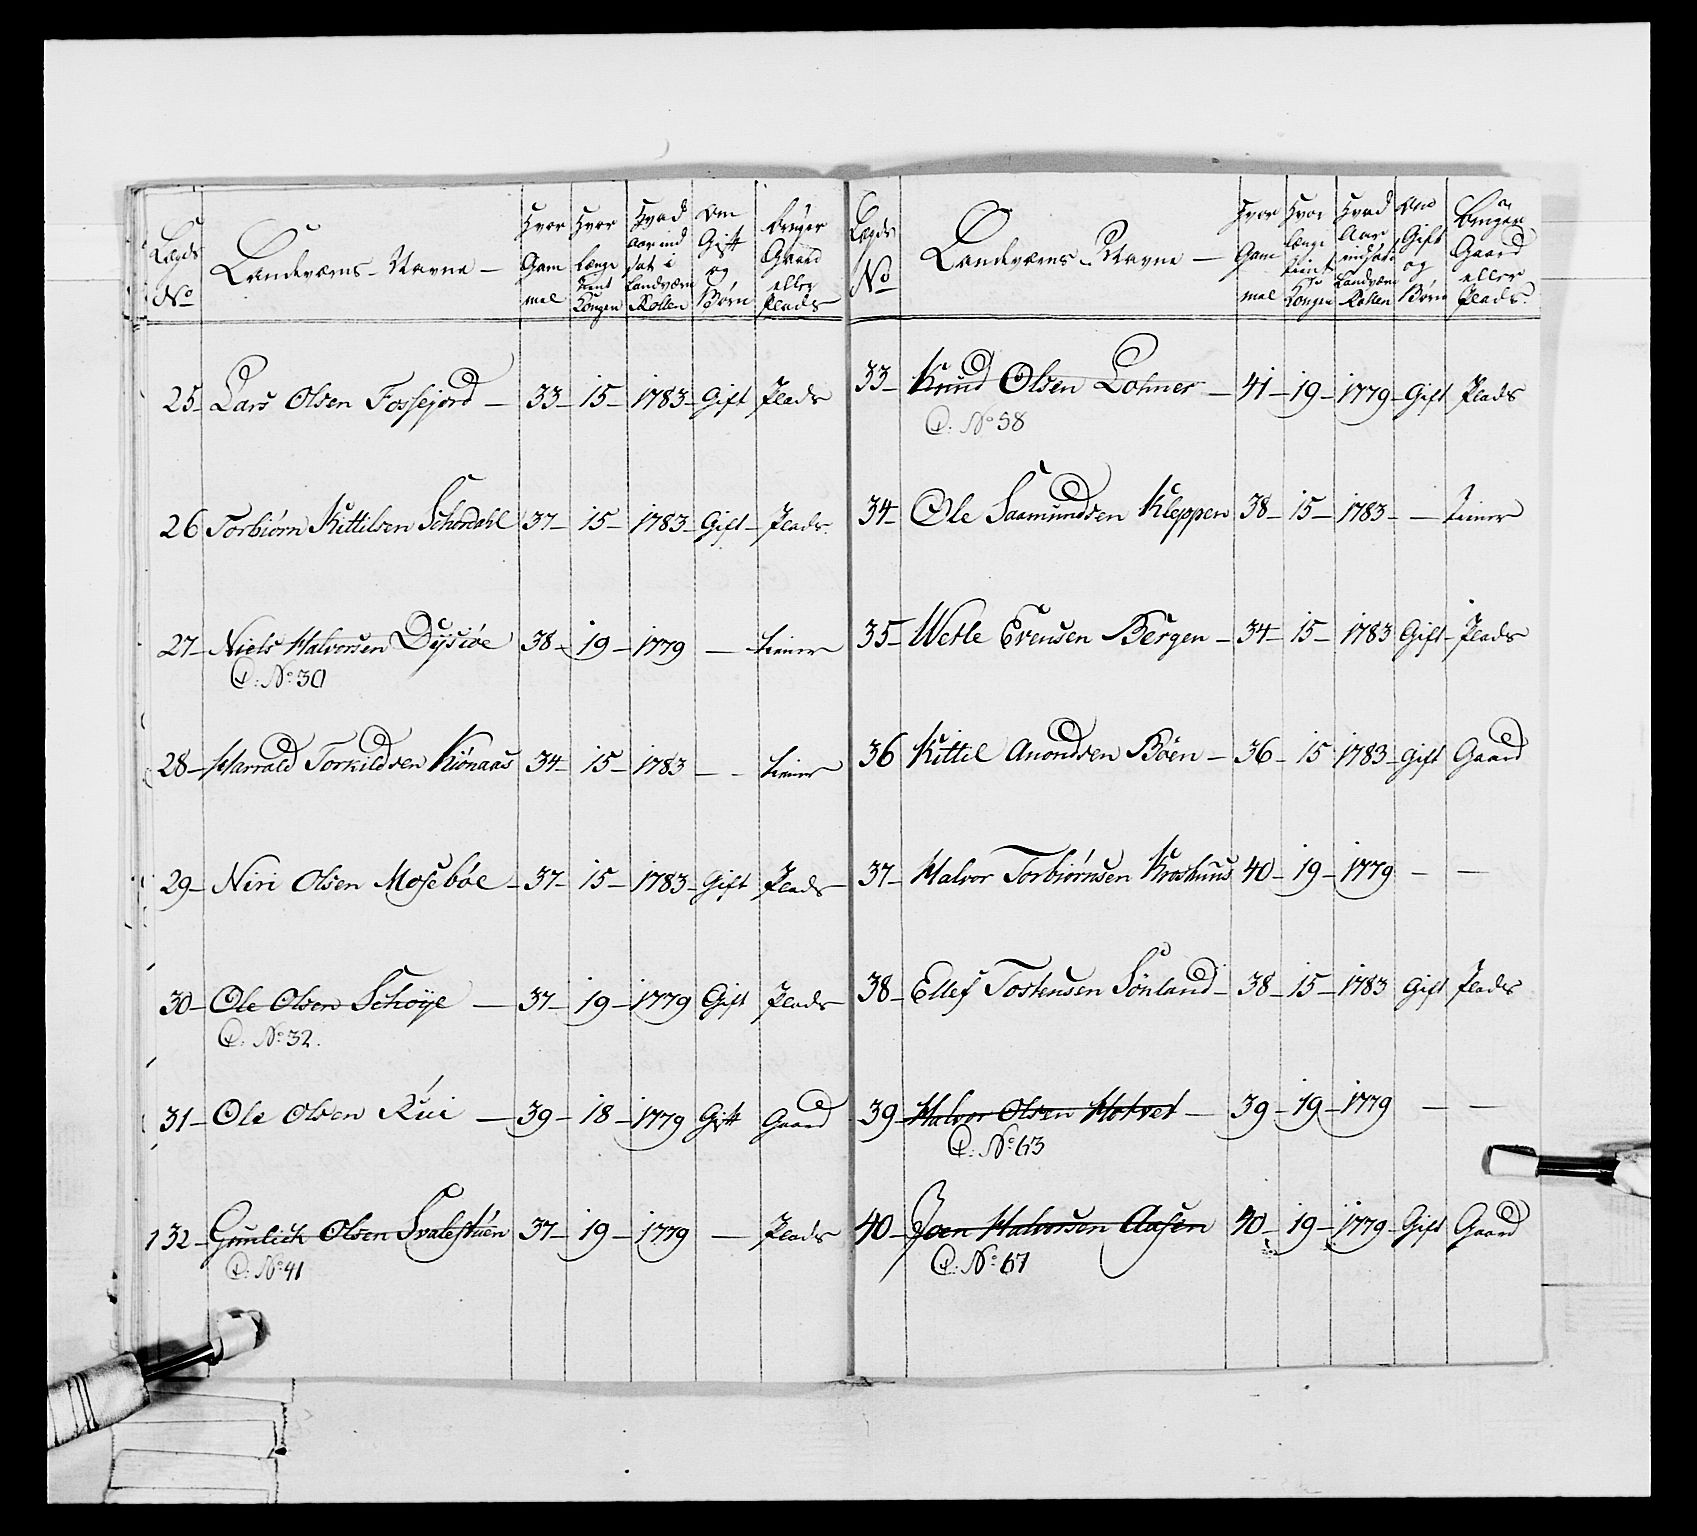 Lægds No
Landeværns-Navne —
Hvor Gam mel
Hvor længe tient Kongen
Hvad Aar ind sat i Landværn Rollen
Om Gift og Børn
Bruger Gaard eller Plads
25 — Lars Olsen Fossejord — 33 — 15 — 1783 — Gift Plads
26 Torbiørn Kittilsen Schordahl 37 — 15 — 1783 — Gift — Plads
27 — Niels Halvorsen Dysiøe 38 — 19 — 1779 — tiener
C: No 30
28 — Harrald Torkildsen Kiönaas 34 — 15 — 1783 — — tiener
29 — Niri Olsen Mosebøe — 37 — 15 — 1783 — Gift Plads
30 — Ole Olsen Schöÿe — 37 — 19 — 1779 Gift Plads
C: No 32.
31 — Ole Olsen Rui — 39 — 18 — 1779 Gift Gaard
132 — Gunlich Olsen Svalestuen 37 — 19 — 1779 — Plads
C: No 41
Lægds No
Landeværns Navne —
Hvor Gam mel
Hvor længe tient Kongen
Hvad Aar indsat Landværn Rollen
Om Gift og Børn
Bruger Gaard eller Plads
33 — Knud Olsen Lohner — 41 — 19 — 1779 — Gift Plads
C: No 58
34 — Ole Saamundsen Kleppen 38 — 15 — 1783 — — tiener
35 — Wetle Evensen Bergen — 34 — 15 — 1783 Gift — Plads
36 Kittil Anondsen Bøen — 36 — 15 1783 — Gift Gaard
37 — Halvor Torbiørnsen Kroshuus 40 — 19 — 1779 — —
38 — Ellef Tostensen Sönland — 38 — 15 — 1783 Gift Plads
39 — Halvor Olsen Hotvet — 39 — 19 — 1779 — —
C: No 63
40 — Joen Halvorsen Aasen 40 — 19 — 1779 — Gift Gaard
C: No 67